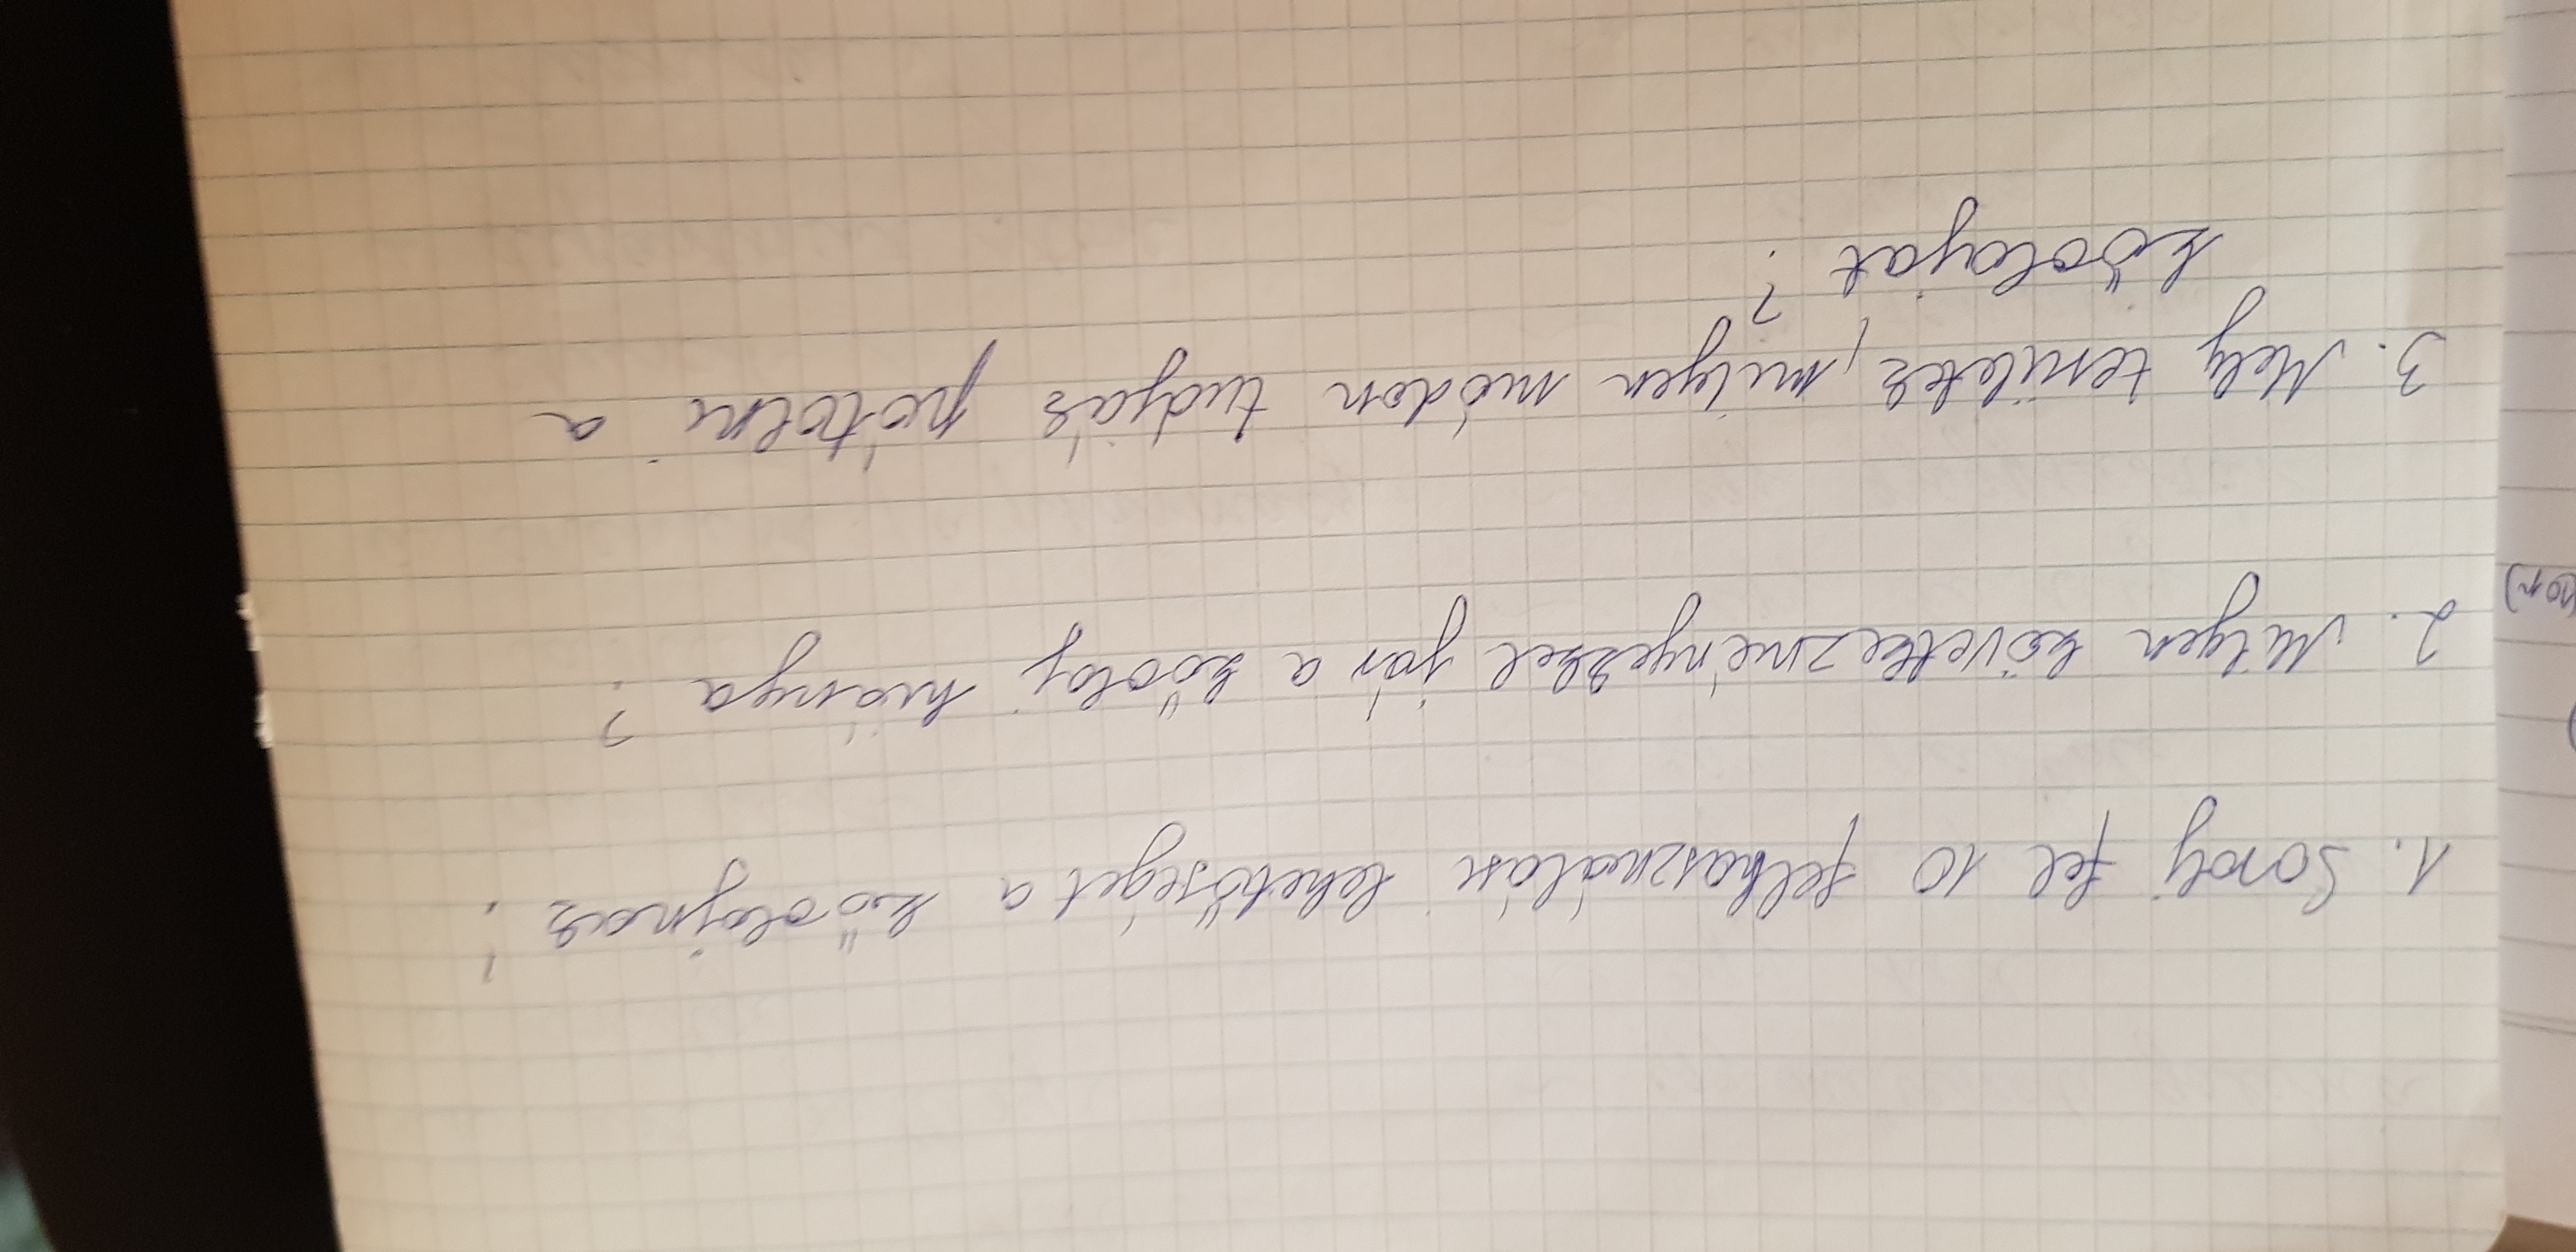 1. Sorolj fel 10 felhasználási lehetőséget a kőolajnak!
2. Milyen következményekkel jár a kőolaj hiánya?
3. Mely területek, milyen módon tudják pótolni a
kőolajat?